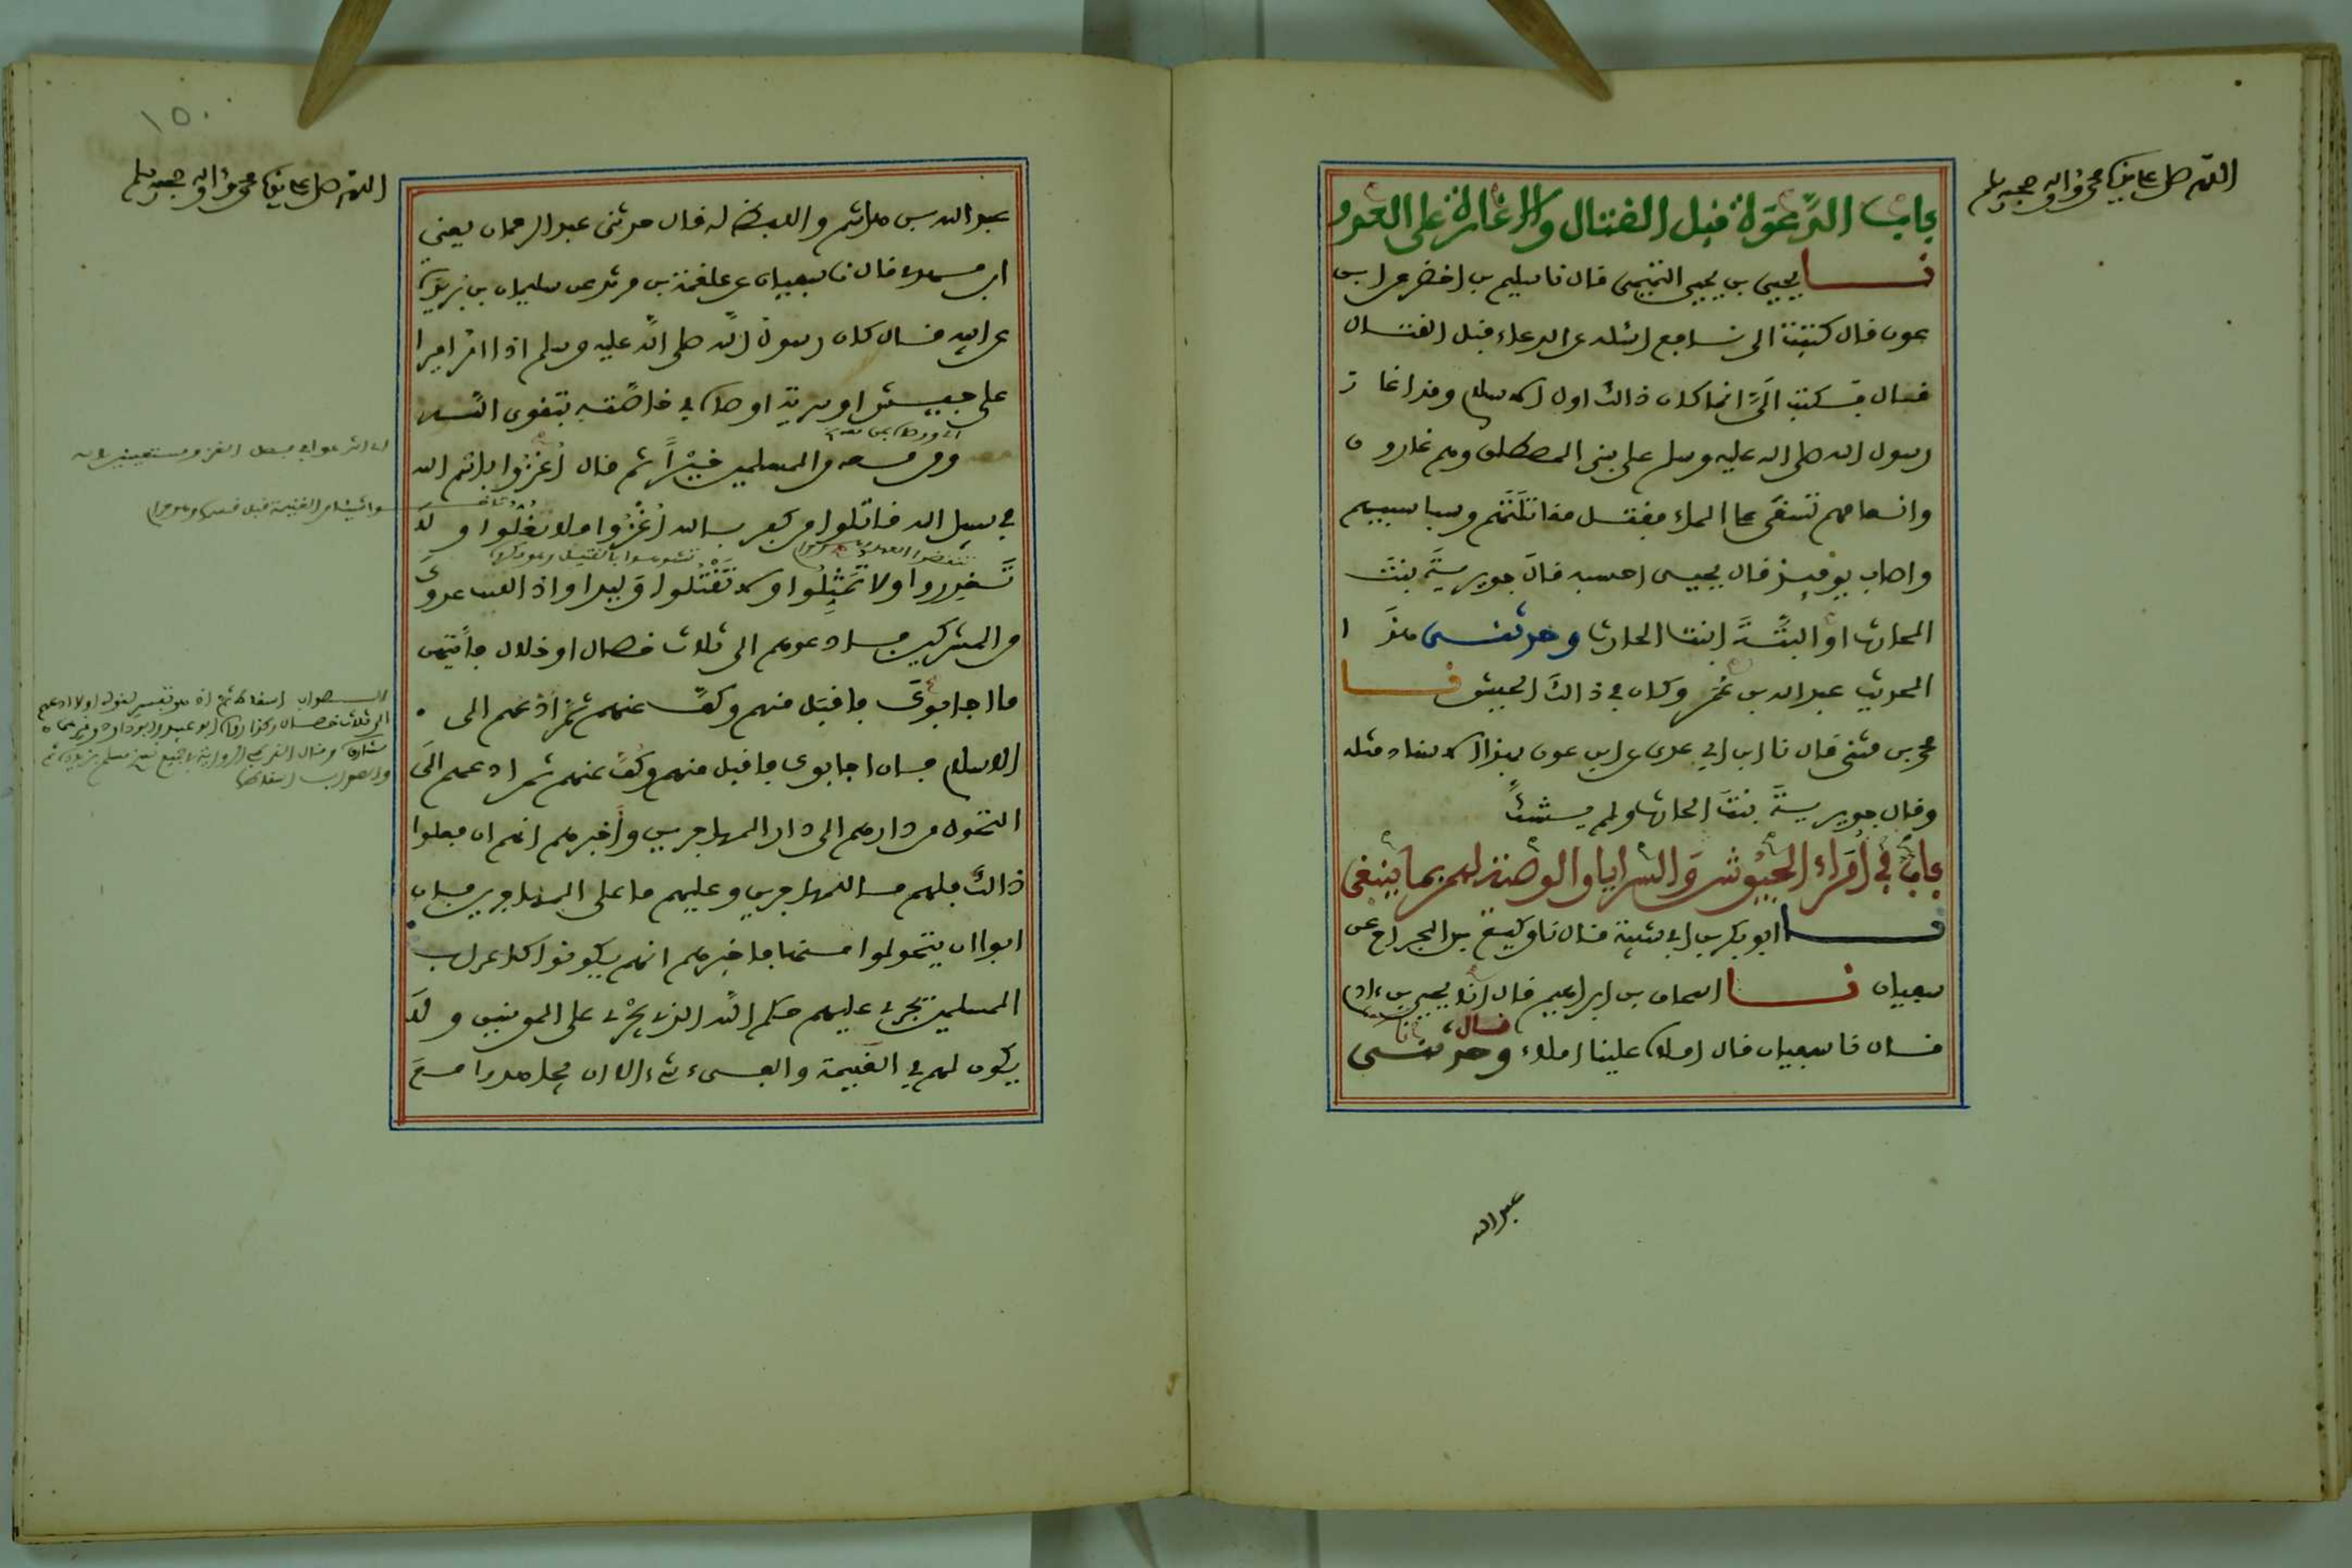 اللهم صل على نبينا محمد واله وصحبه وسلم
باب الدعوة قبل القتال والاغارة على العدو
نا يحيى بن يحيى التميمي قال نا سليم بن اخضر عن ابن
عون قال كتبت الى نافع اسئله عن الدعاء قبل القتال
فقال فكتب الي انما كان ذالك اول الاسلام وقد اغار
رسول الله صلى الله عليه وسلم على بني المصطلق وهم غارون
وانعامهم تسقى على الماء فقتل مقاتلتهم وسبا سبيهم
واصاب يومئذ قال يحيى احسبه قال جويرية بنت
الحارث او البتة ابنت الحارث وحدثني هذا
الحديث عبد الله بن عمر وكان في ذالك الجيش نا
محمد بن مثنى قال نا ابن ابي عدي عن ابن عون بهذا الاسناد مثله
وقال جويرية بنت الحارث ولم يشك
باب في امراء الجيوش والسرايا والوصية لهم بما ينبغي
نا ابو بكر بن ابي شيبة قال نا وكيع بن الجراح عن
سفيان نا اسحاق بن ابراهيم قال انا يحيى بن ءادم
قال نا سفيان قال املاه علينا املاء قال وحدثني
عبد الله
١٥٠
اللهم صل على نبينا محمد واله وصحبه وسلم
عبد الله بن هاشم واللفظ له قال حدثني عبد الرحمان يعني
ابن مهدي قال نا سفيان عن علقمة بن مرثد عن سليمان بن بريدة
عن ابيه قال كان رسول الله صلى الله عليه وسلم اذا امر اميرا
على جيش او سرية اوصاه في خاصته بتقوى الله
ومن معه من المسلمين خيرا ثم قال اغزوا باسم الله
في سبيل الله قاتلوا من كفر بالله اغزوا ولا تغلوا ولا
تغدروا ولا تمثلوا ولا تقتلوا وليدا واذا لقيت عدوك
من المشركين فادعوهم الى ثلاث خصال او خلال فايتهن
ما اجابوك فاقبل منهم وكف عنهم ثم ادعهم الى
الاسلام فان اجابوك فاقبل منهم وكف عنهم ثم ادعهم الى
التحول من دارهم الى دار المهاجرين واخبرهم انهم ان فعلوا
ذالك فلهم ما للمهاجرين وعليهم ما على المهاجرين فان
ابوا ان يتحولوا منها فاخبرهم انهم يكونوا كاعراب
المسلمين يجري عليهم حكم الله الذي يجري على المومنين ولا
يكون لهم في الغنيمة والفيء شيء الا ان يجاهدوا مع
اي اشرعوا في فعل الغزو مستعينين بالله
من الغنيمة قبل قسمها وهو حرام
تنقضوا العهد
تشوهوا بالقتيل
الصواب اسقاط ثم اذ هو تفسير لقوله اولا ادعهم
الى ثلاث خصال وكذا رواه ابو عبيد وابو داود وغيرهما
وقال القرطبي الرواية في جميع نسخ مسلم بزيادة ثم
والصواب اسقاطها